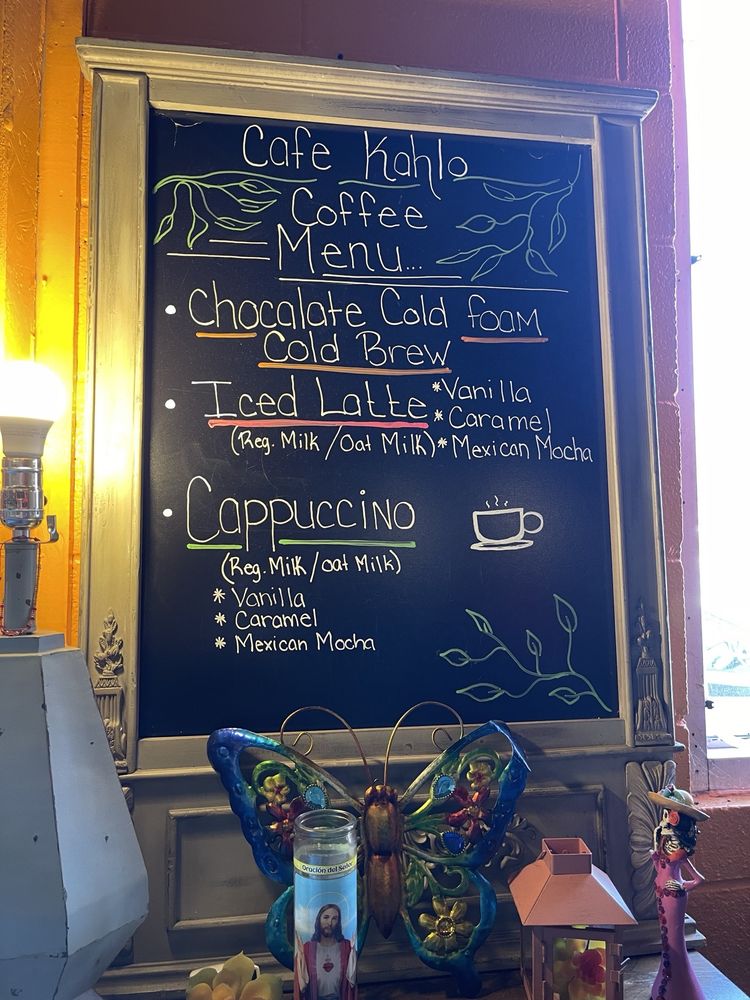 Cafe Kahlo
Coffee
Menu...
• Chocalate Cold foam
Cold Brew
• Iced Latte *Vanilla
*Caramel
(Reg. Milk/Oat Milk) *Mexican Mocha
• Cappuccino
(Reg. Milk/Oat Milk)
* Vanilla
* Caramel
* Mexican Mocha
Oración del Señor